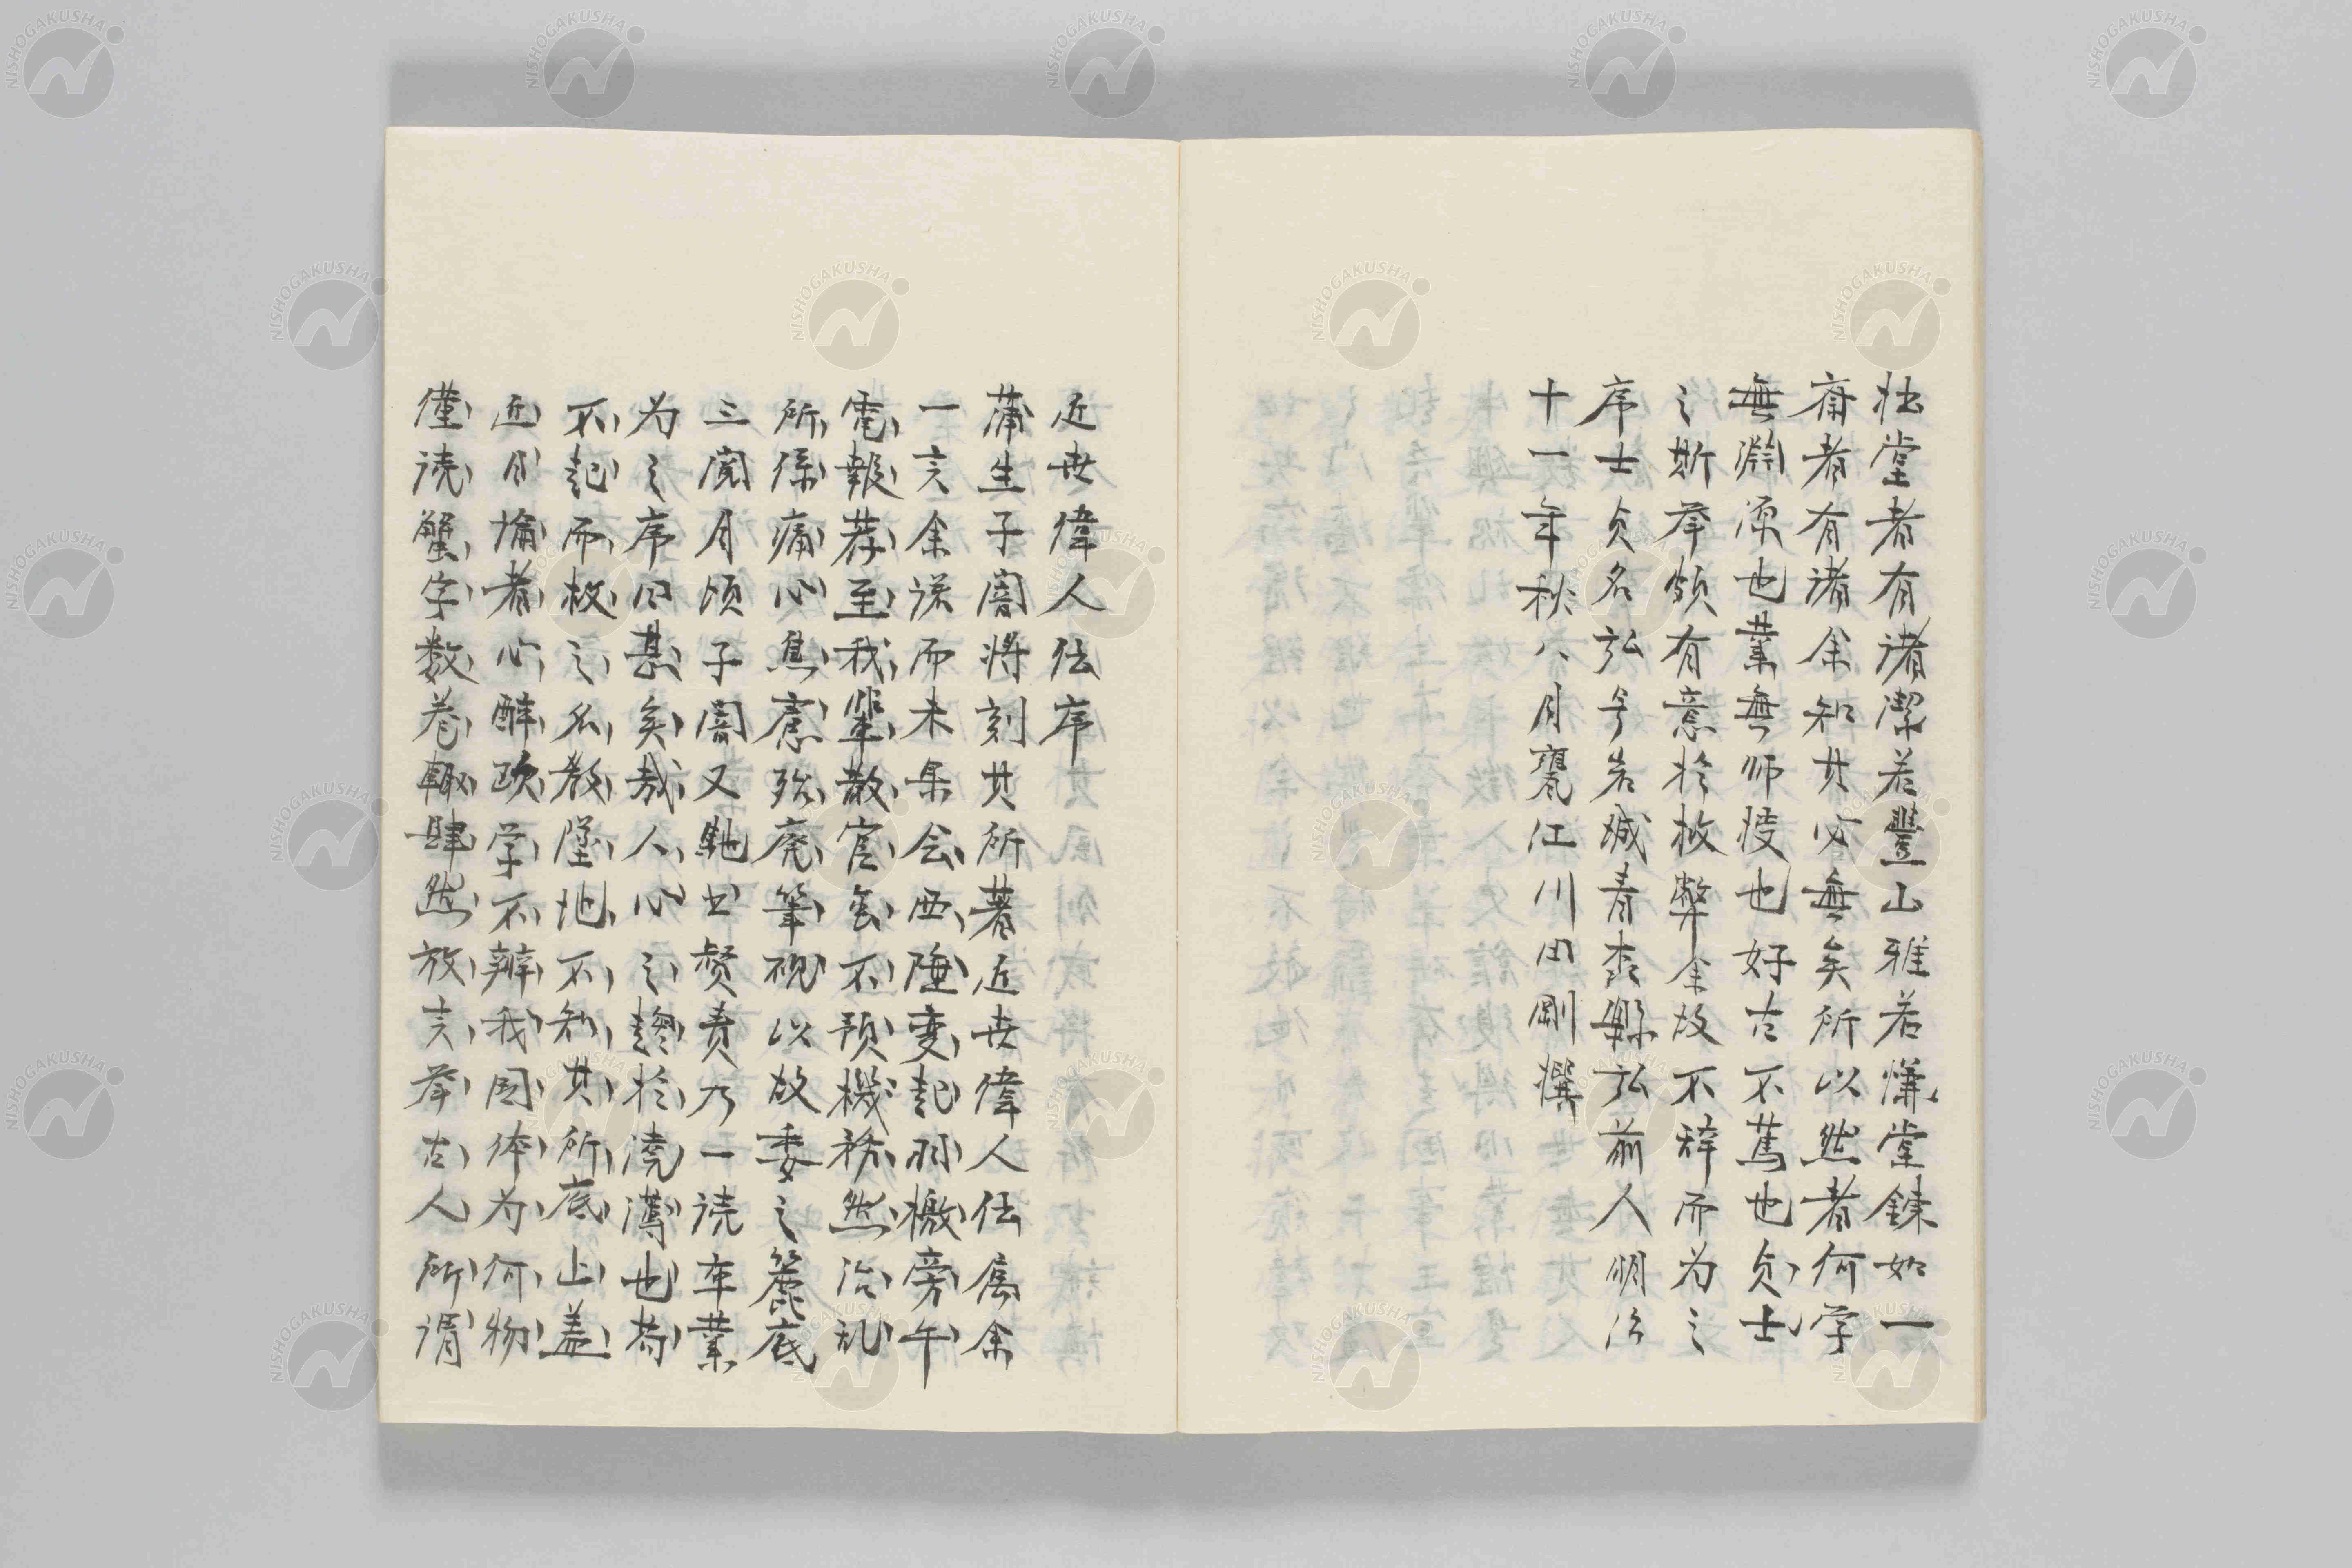 壮堂者有諸潔若豐山雅若慊堂錬如一
斎者有諸余知其必無矣所以然者何学
無淵源也業無師授也好古不篤也貞士
之斯挙頗有意於救弊余故不辞而為之
序士貞名弘号岩城青森縣弘前人明治
十一年秋八月甕江川田剛撰
近世偉人伝序
蒲生子闇将刻其所著近世偉人伝属余
一言余諾而未果会西陲変起羽檄旁午
電報荐至我輩散官雖不預機務然治乱
所係痛心焦慮殆廃筆硯以故委之簏底
三閲月頃子闇又馳書督責乃一読卒業
為之序曰甚矣哉人心之趨於澆漓也苟
不起而救之名教墜地不知其所底止蓋
近日慉者心酔欧学不辨我国体為何物
僅読蟹字数巻輙肆然放言挙古人所謂
NISHOGAKUSHA